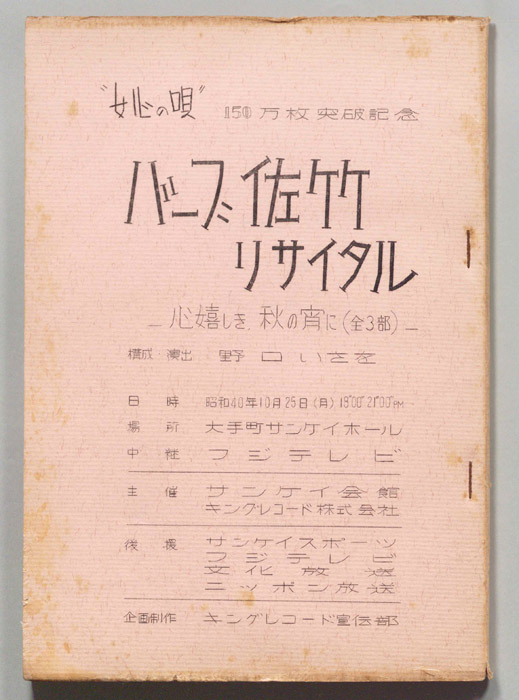 "女心の唄" 150万枚突破記念
バーブ佐竹
リサイタル
— 心嬉しき、秋の宵に(全3部) —
構成・演出 野口いさを
日時 昭和40年10月25日(月) 18°00'21°00'PM
場所 大手町サンケイホール
中継 フジテレビ
主催 サンケイ会館
キングレコード株式会社
後援 サンケイスポーツ
フジテレビ
文化放送
ニッポン放送
企画制作 キングレコード宣伝部